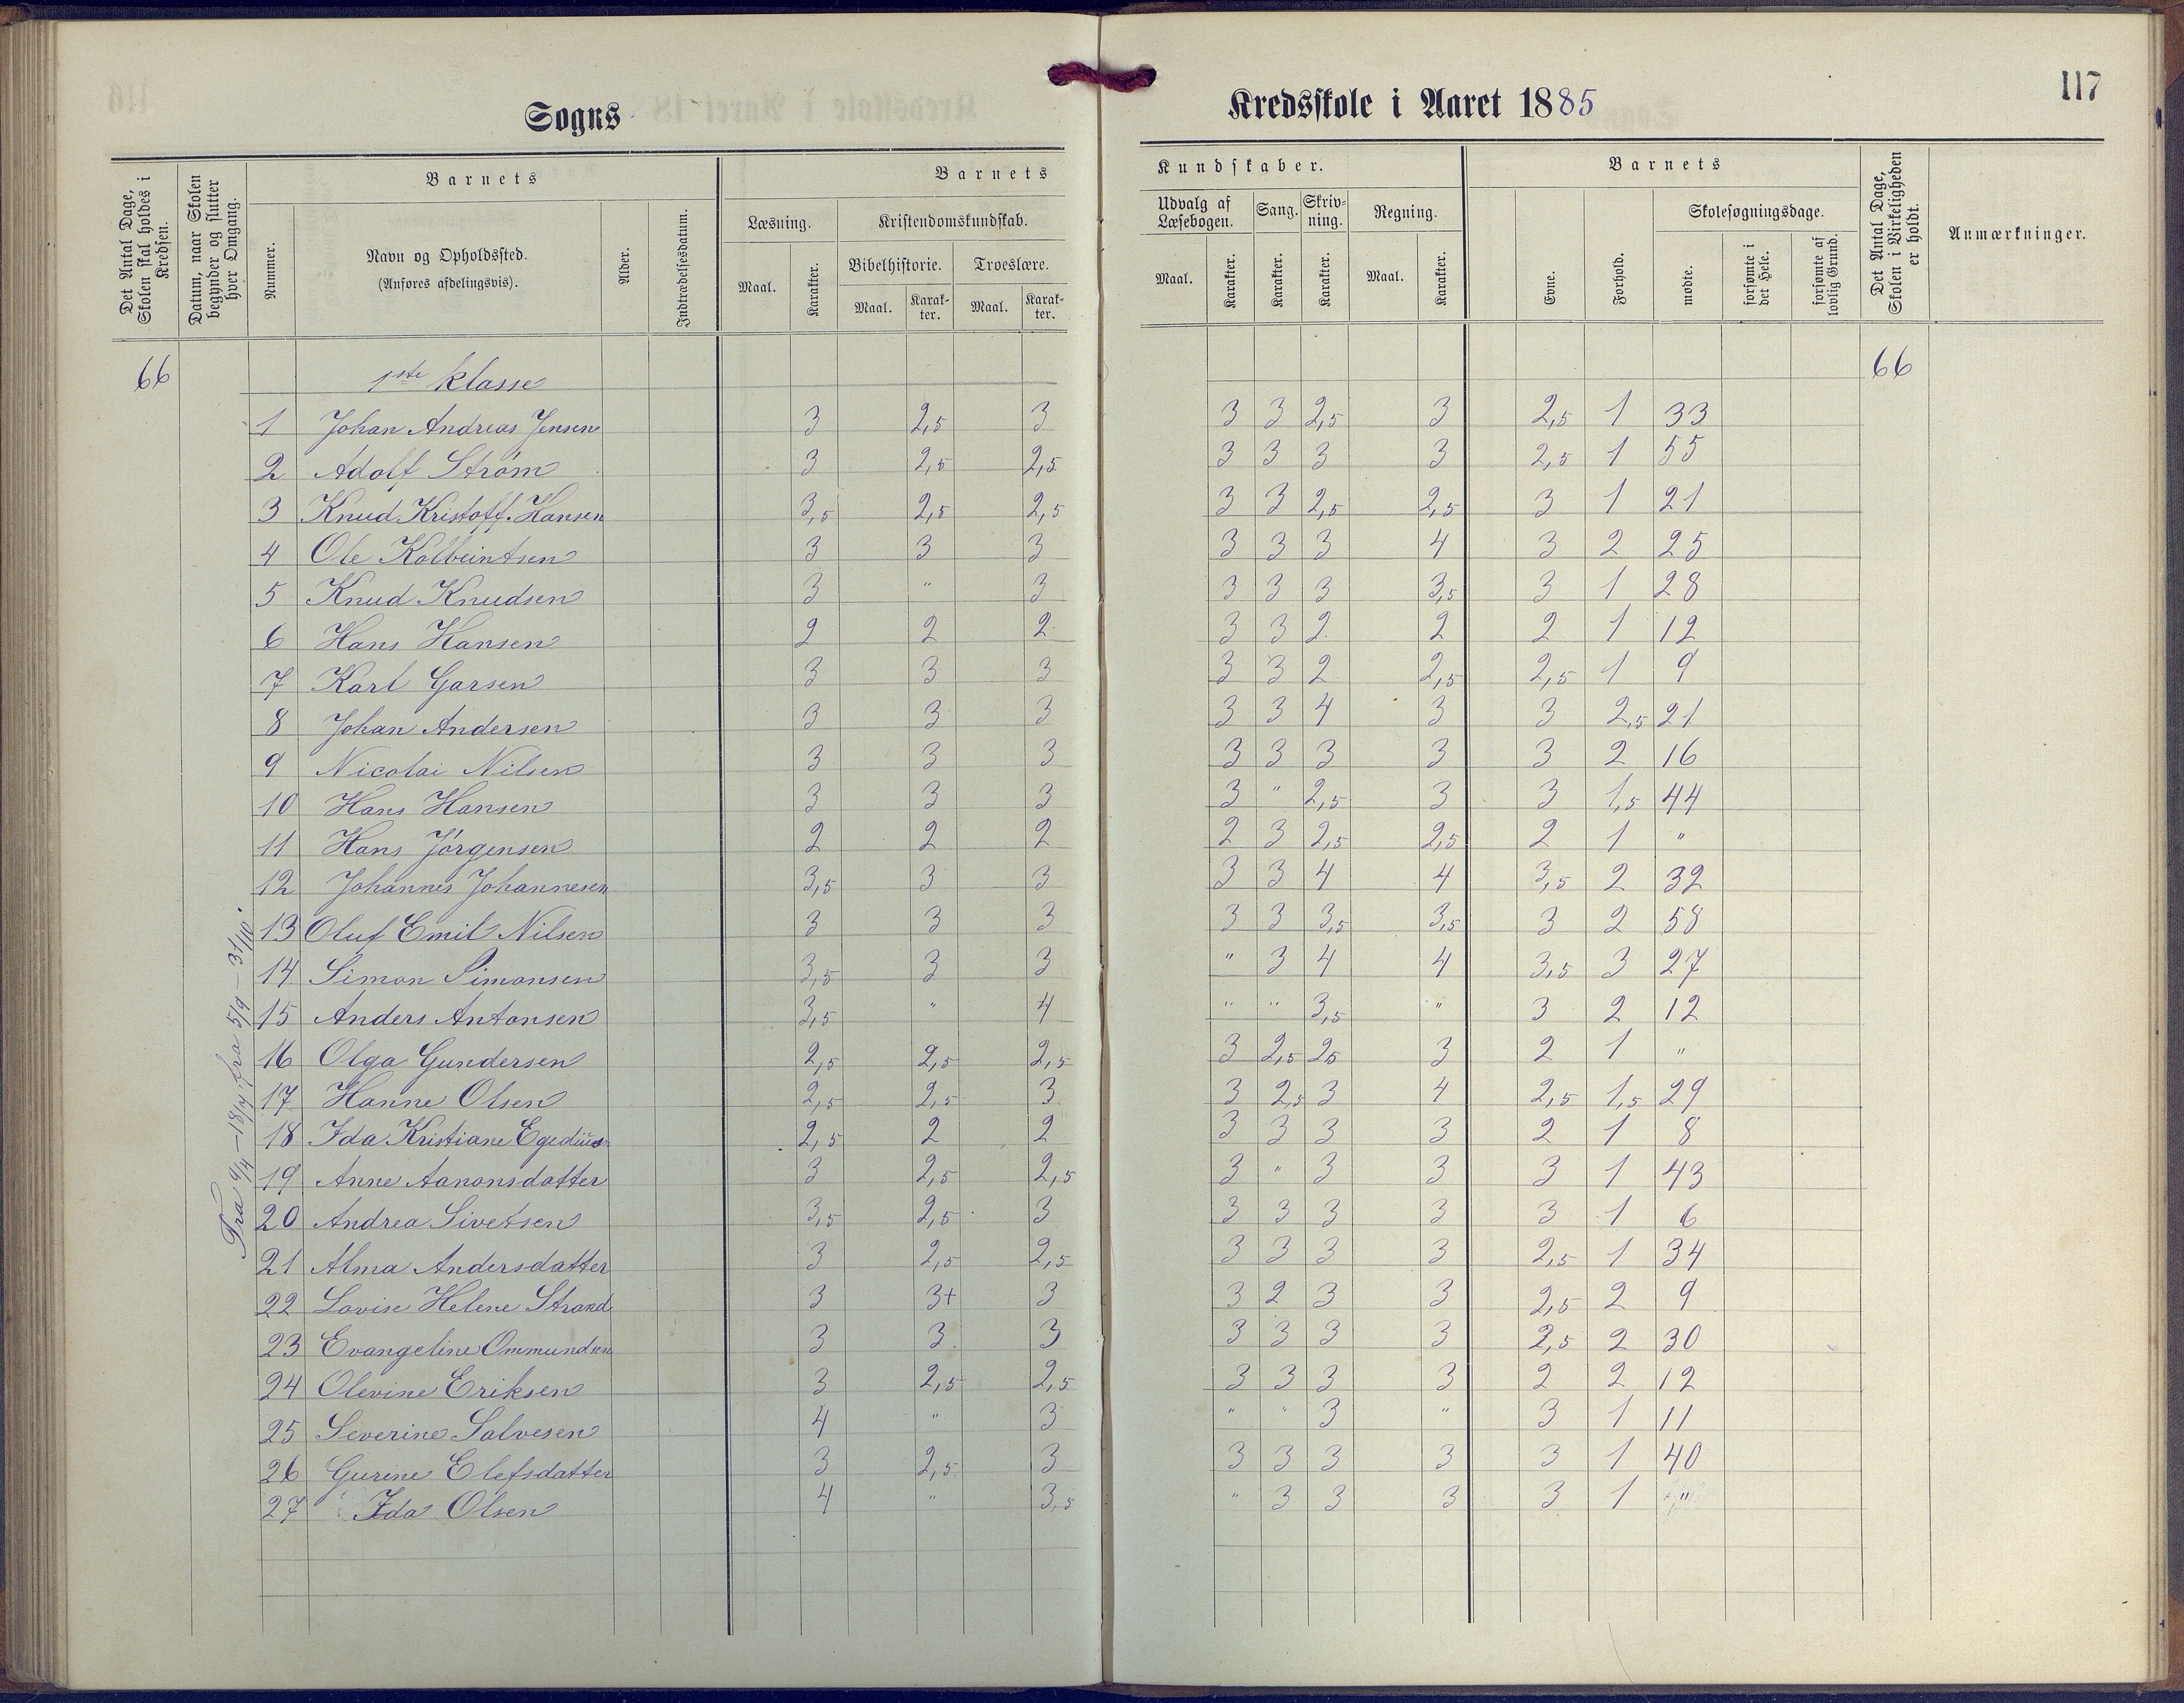 117
Sogns Kredsskole i Aaret 1885
Det Antal Dage, Skolen skal holdes i Kredsen.
Datum, naar Skolen begynder og slutter hver Omgang.
Barnets
Nummer.
Navn og Opholdssted.
(Anføres afdelingsvis).
Alder.
Indtrædelsesdatum.
Barnets Kundskaber.
Læsning.
Maal. Karakter.
Kristendomskundskab.
Bibelhistorie. Troeslære.
Maal. Karakter. Maal. Karakter.
Udvalg af Læsebogen. Sang. Skrivning. Regning.
Maal. Karakter. Karakter. Karakter. Maal. Karakter.
Barnets
Evne. Forhold.
Skolesøgningsdage.
mødte. forsømte i det Hele. forsømte af lovlig Grund.
Det Antal Dage, Skolen i Virkeligheden er holdt.
Anmærkninger.
66 1ste klasse 66
1 Johan Andreas Jensen 3 2,5 3 3 3 2,5 3 2,5 1 33
2 Adolf Strøm 3 2,5 2,5 3 3 3 3 2,5 1 55
3 Knud Kristoff. Hansen 3,5 2,5 2,5 3 3 2,5 2,5 3 1 21
4 Ole Kolbeintsen 3 3 3 3 3 3 4 3 2 25
5 Knud Knudsen 3 " 3 3 3 3 3,5 3 1 28
6 Hans Hansen 2 2 2 3 3 2 2 2 1 12
7 Karl Garsen 3 3 3 3 3 2 2,5 2,5 1 9
8 Johan Andersen 3 3 3 3 3 4 3 3 2,5 21
9 Nicolai Nilsen 3 3 3 3 3 3 3 3 2 16
10 Hans Hansen 3 3 3 3 " 2,5 3 3 1,5 44
11 Hans Jørgensen 2 2 2 2 3 2,5 2,5 2 1 "
12 Johannes Johannesen 3,5 3 3 3 3 4 4 3,5 2 32
13 Oluf Emil Nilsen 3 3 3 3 3 3,5 3,5 3 2 58
14 Simon Simonsen 3,5 3 3 " 3 4 4 3,5 3 27
15 Anders Antonsen 3,5 " 4 " " 3,5 " 3 2 12
16 Olga Gundersen 2,5 2,5 2,5 3 2,5 25 3 2 1 "
17 Hanne Olsen 2,5 2,5 3 3 2,5 3 4 2,5 1,5 29
18 Ida Kristiane Egedius 2,5 2 2 3 3 3 3 2 1 8
19 Anne Aanonsdatter 3 2,5 2,5 3 " 3 3 3 1 43
20 Andrea Sivetsen 3,5 2,5 3 3 3 3 3 3 1 6
21 Alma Andersdatter 3 2,5 2,5 3 3 3 3 2,5 1 34
22 Lovise Helene Strand 3 3+ 3 3 2 3 3 2,5 2 9
23 Evangeline Ommundsen 3 3 3 3 3 3 3 2,5 2 30
24 Olevine Eriksen 3 2,5 2,5 3 3 3 3 2 2 12
25 Severine Salvesen 4 " 3 " " 3 " 3 1 11
26 Gurine Elefsdatter 3 2,5 3 3 3 3 3 3 1 40
27 Ida Olsen 4 " 3,5 " 3 3 3 3 1 "
Fra 9/4 – 18/7, fra 5/9 – 31/10.